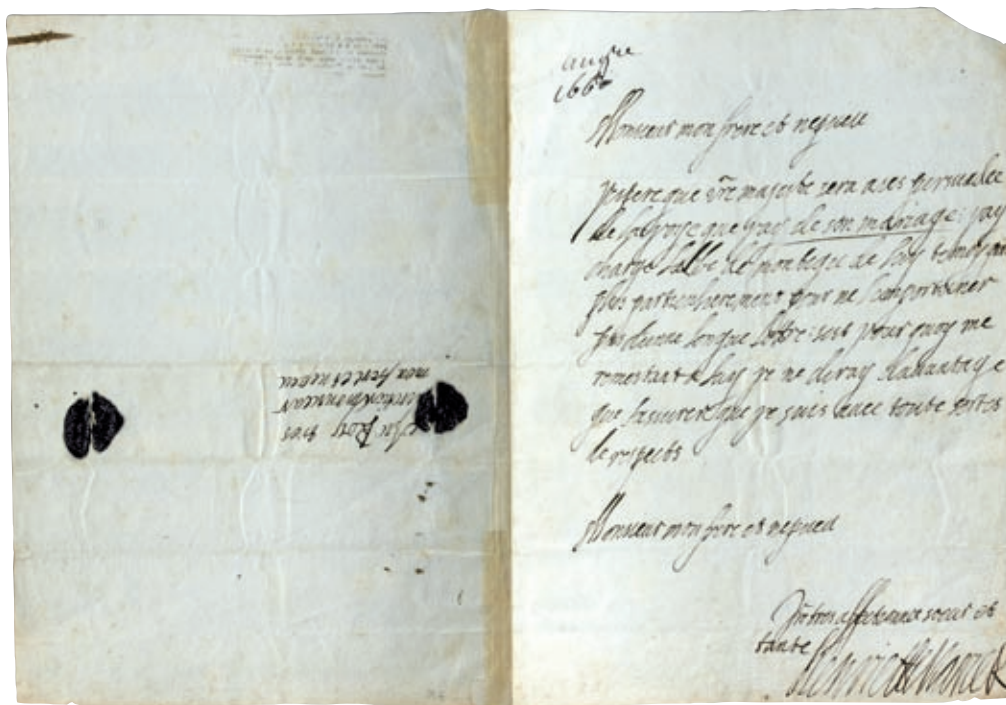 Au Roy tres
monsieur
mon frere et neveu
1660
Monsieur mon frere et nepueu
jespere que vre majeste sera ases persuadee
de la joye que jay de son mariage: jay
charge labbe de montegu de luy
plus particulierement pour ne
pas dunne longue lettre: sest pourquoy me
remettant a luy je ne diray dauantage
que lasurer que je suis auec toute sortes
de respects
Monsieur mon frere et nepueu
tres affectionnee soeur et
tante
Henriette Marie R